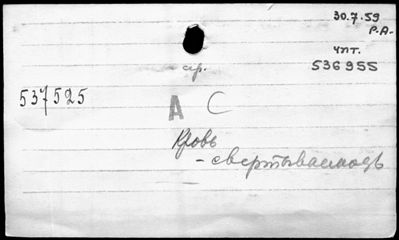 30.7.59
Р.А.
чпт.
536955
ср.
537525
А С
Кровь
- свертываемость